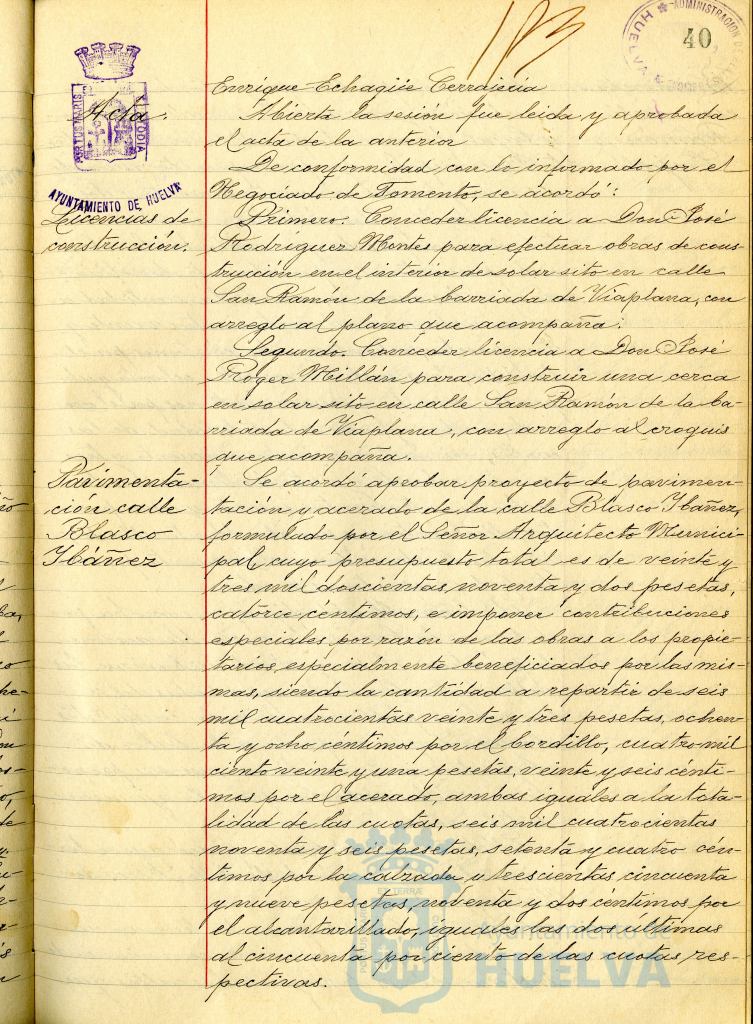 ADMINISTRACION DE
HUELVA
40
PORTUS MARIS
CUSTODIA
AYUNTAMIENTO DE HUELVA
Enrique Echagüe Cerrajería
Acta.
Abierta la sesión fue leida y aprobada
el acta de la anterior
De conformidad con lo informado por el
Negociado de Fomento, se acordó:
Licencias de
construcción.
Primero. Conceder licencia a Don José
Rodríguez Montes para efectuar obras de cons-
trucción en el interior de solar sito en calle
San Ramón de la barriada de Viaplana, con
arreglo al plano que acompaña.
Segundo. Conceder licencia a Don José
Roger Millán para construir una cerca
en solar sito en calle San Ramón de la ba-
rriada de Viaplana, con arreglo al croquis
que acompaña.
Pavimenta-
ción calle
Blasco
Ibáñez
Se acordó aprobar proyecto de pavimen-
tación y acerado de la calle Blasco Ibáñez,
formulado por el Señor Arquitecto Munici-
pal, cuyo presupuesto total es de veinte y
tres mil doscientas noventa y dos pesetas,
catorce céntimos, e imponer contribuciones
especiales por razón de las obras a los propie-
tarios especialmente beneficiados por las mis-
mas, siendo la cantidad a repartir de seis
mil cuatrocientas veinte y tres pesetas, ochen-
ta y ocho céntimos por el bordillo, cuatro mil
ciento veinte y una pesetas, veinte y seis cénti-
mos por el acerado, ambas iguales a la tota-
lidad de las cuotas, seis mil cuatrocientas
noventa y seis pesetas, setenta y cuatro cén-
timos por la calzada y trescientas cincuenta
y nueve pesetas, noventa y dos céntimos por
el alcantarillado, iguales las dos últimas
al cincuenta por ciento de las cuotas res-
pectivas.
Ayuntamiento de
HUELVA